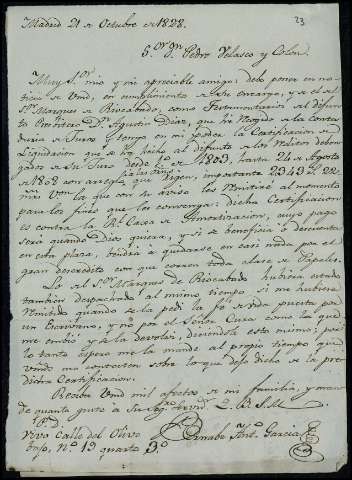 23
Madrid 21 de Octubre de 1828.
S.or Dn. Pedro Velasco y Colon.
Muy S.or mio y mi apreciable amigo: debo poner en no-
ticia de Vmd. en cumplimiento de su encargo, y el del
S.or Marques de Riocabado, como Testamentarios del difunto
Presbitero Dn. Agustin Diaz, que hé sacado de la Conta-
duria de Juros y tengo en mi poder la Certificacion de
Liquidacion que se ha hecho al difunto de los reditos deven-
gados de su Juro desde 1.º de 1803, hasta 24 de Agosto
de 1808 con arreglo que rigen, importante 2343 r.s 22
mrs von. la que con su aviso les remitiré al momento
para los fines que les convenga: dicha Certificacion
es contra la R.l Caxa de Amortizacion, cuyo pago
será quando Dios quiera, y si se beneficia ó descuenta
en esta plaza, vendrá a quedarse en casi nada por el
gran descredito con que corren toda clase de Papeles.
Lo del S.or Marques de Riocabado hubiera estado
tambien despachado al mismo tiempo si me hubiera
remitido quando se la pedi la fé de vida puesta por
un Escrivano, y no por el Señor Cura como la que
me embió y se la devolví, diciendole esto mismo; por
lo tanto espero me la mande al propio tiempo que
vmd. me contesten sobre lo que dejo dicho de la pre-
dicha Certificacion.
Reciva Vmd. mil afectos de mi familia, y man-
de quanto guste á su Seg.o Servid.r Q. B. S. M.
P. D.
Vivo Calle del Olivo
baja, n.º 19 quarto 3.º
Bernabe Ant.o Garcia